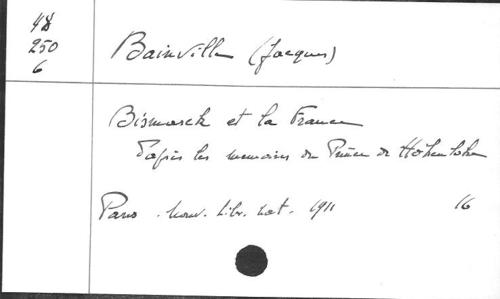 48
250
6
Bainville (Jacques)
Bismarck et la France
d'après les mémoires du Prince de Hohenlohe
Paris . nouv. libr. nat. 1911 16